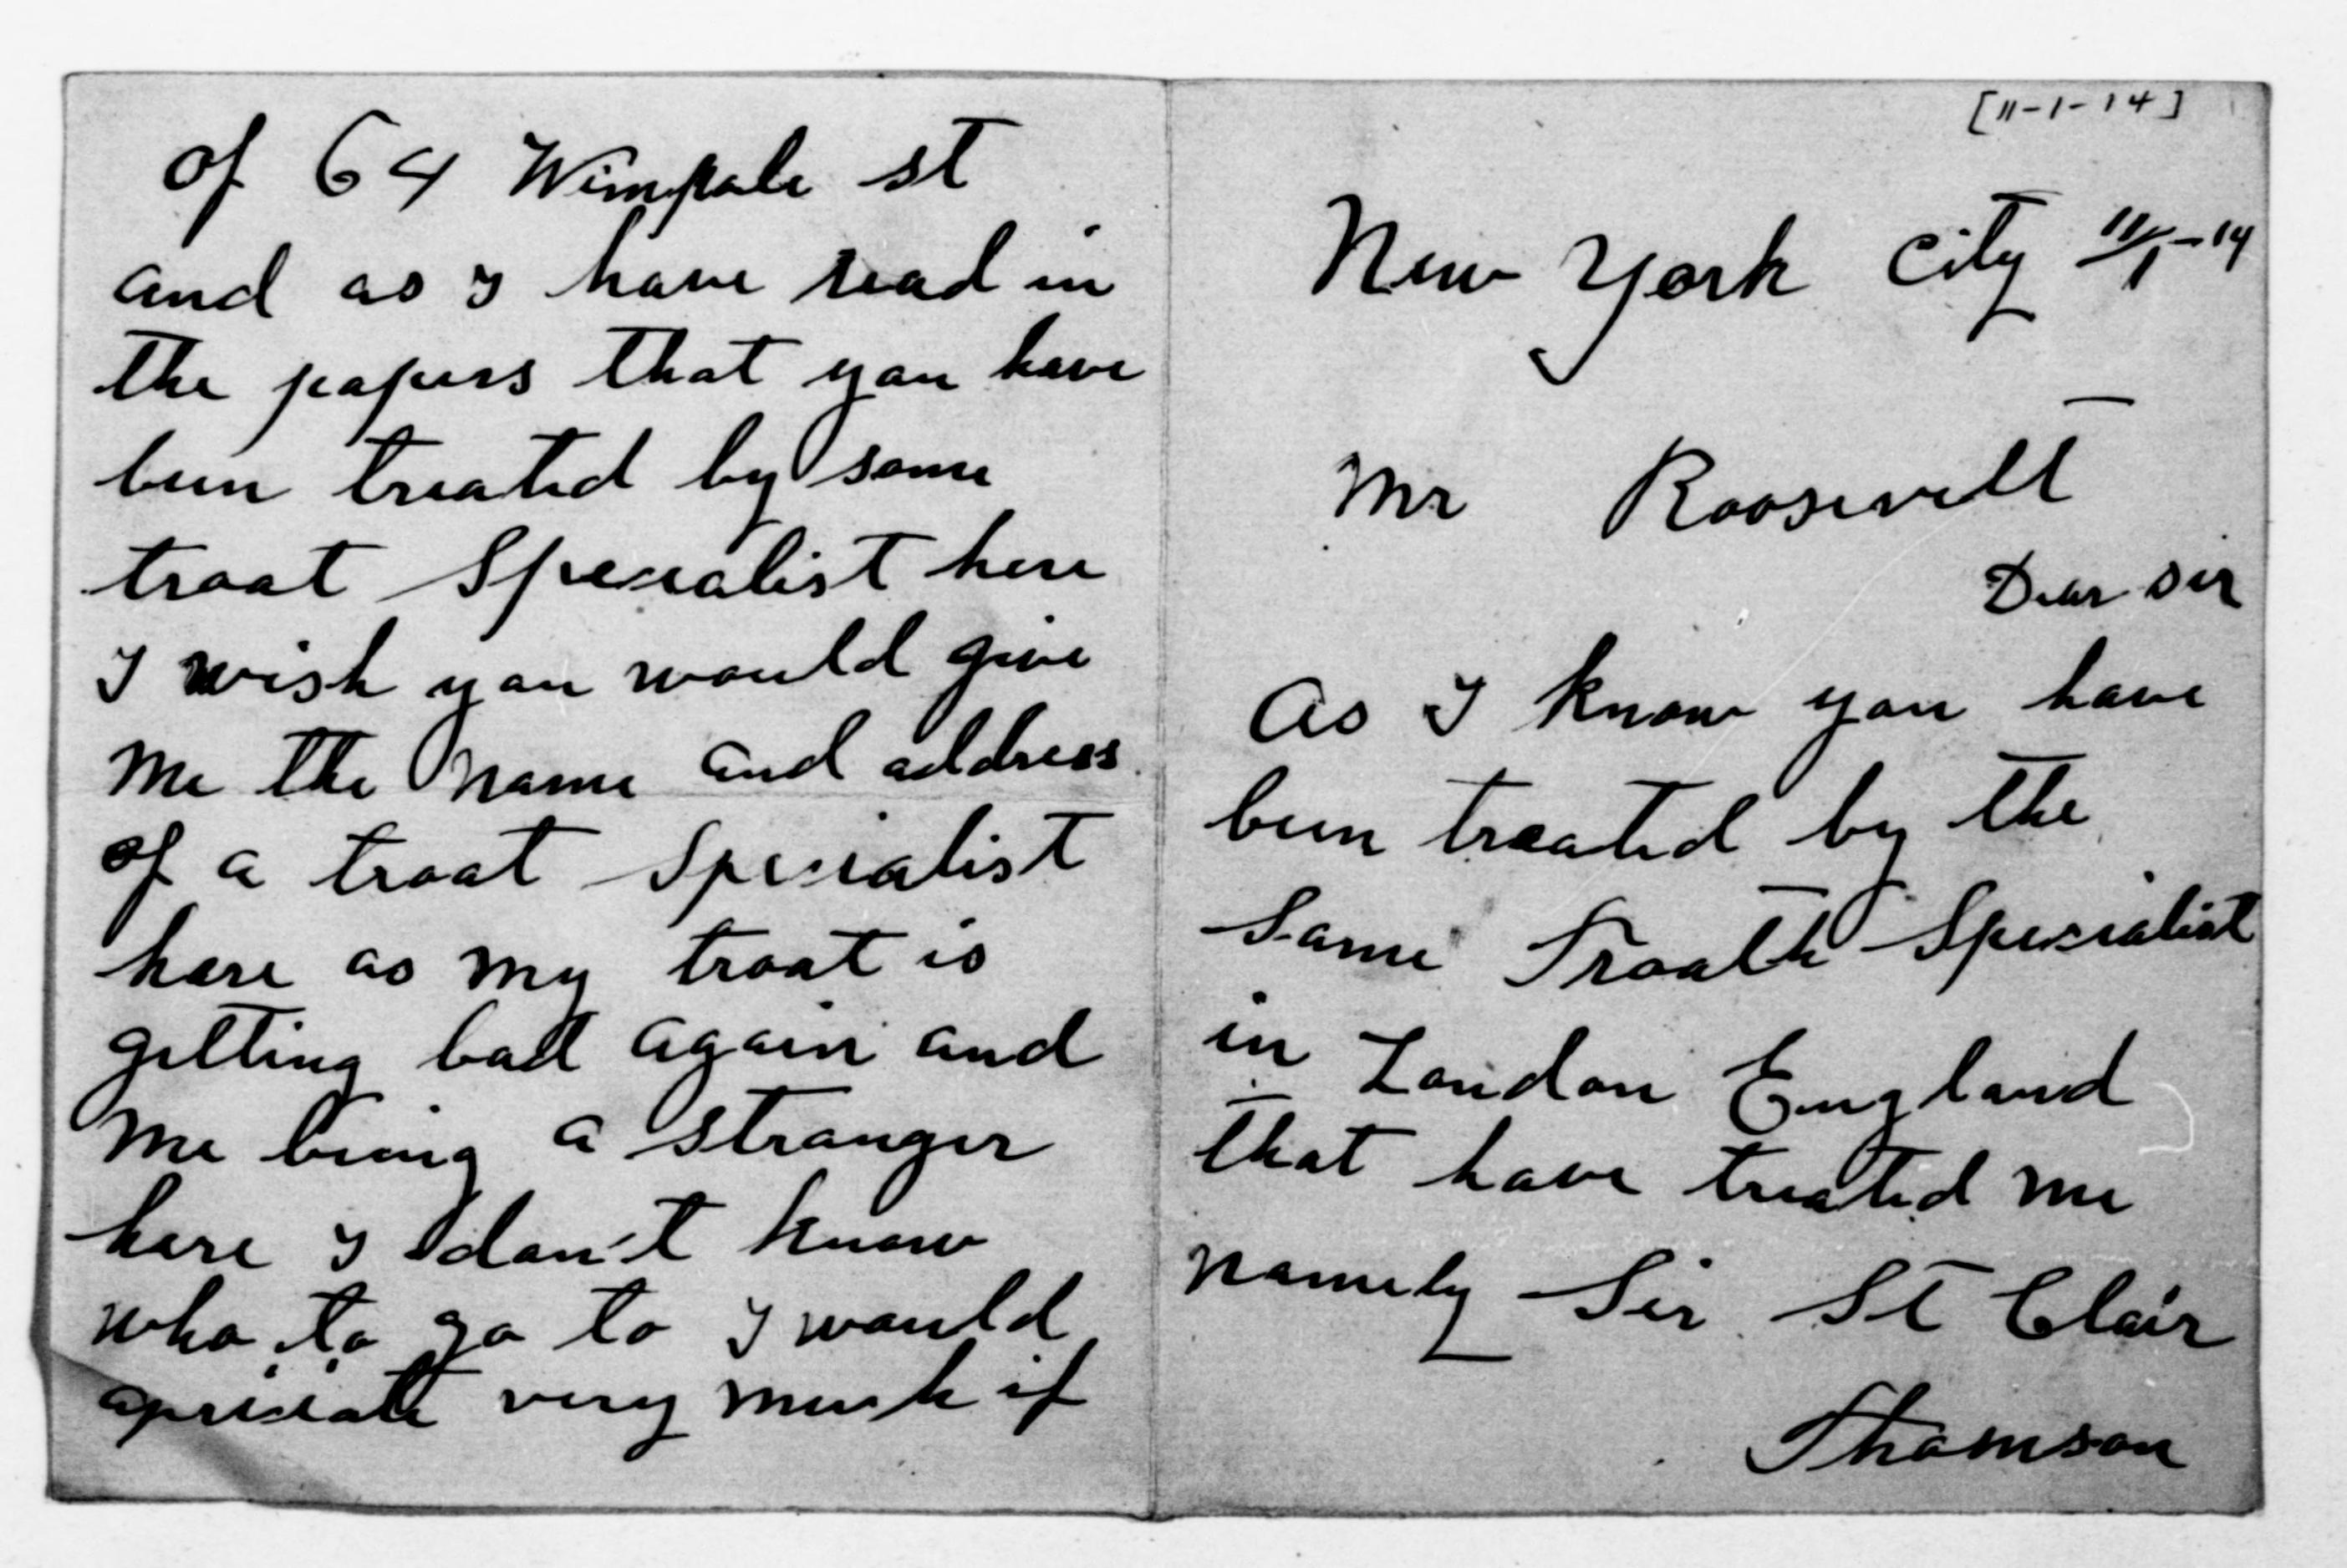 [11-1-14]
New York City 11/1-14
Mr Roosevelt
Dear Sir
As I know you have
been treated by the
Same Troath Spesialist
in London England
that have treated me
namely Sir St Clair
Thomson
of 64 Wimpole st
and as I have read in
the papers that you have
been treated by some
troat Spesialist here
I wish you would give
me the name and address
of a troat Spesialist
here as my troat is
getting bad again and
me being a stranger
here I don't know
who to go to I would
apresiate very much if